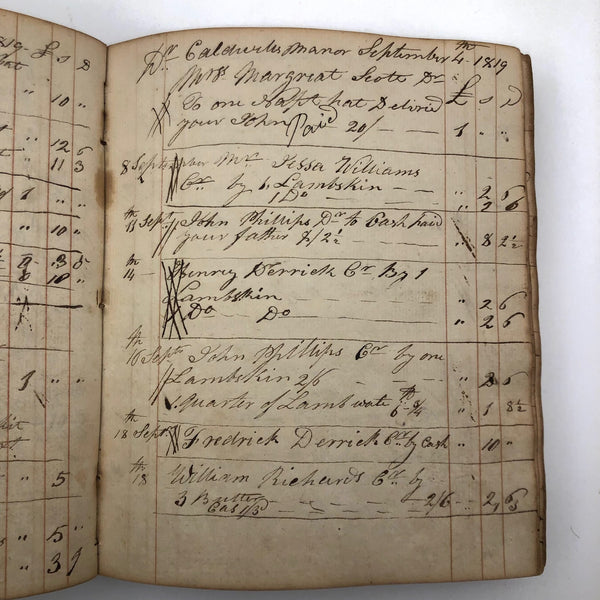 1819. £ s D
10 "
12 6
11 3
1 " "
10 "
.3 5
10 "
1 " "
5
" 5 "
" 3 9
Dr Caldwells Manor September 4th 1819
Mrs Margreat Scott Dr £ s D
To one Napt hat Delivrd
your John Paid 20/ — — 1 " "
8 September Mr Jessa Williams
Cr by 1 Lambskin — — " 2 6
1 Do — — " 2 6
13th Sept John Phillips Dr to Cash paid
your father 8/2½ — — " 8 2½
14th — Henry Derrick Cr By 1
Lambskin — — " 2 6
Do — Do — " 2 6
16th Sept John Phillips Cr by one
Lambskin 2/6 — — " 2 6
1 quarter of Lamb wate 6 " 1 8½
18th Sept Fredrick Derrick Cr by Cash " 10 "
18th William Richards Cr by
3 Butter — — 2/6 — " 2, 6